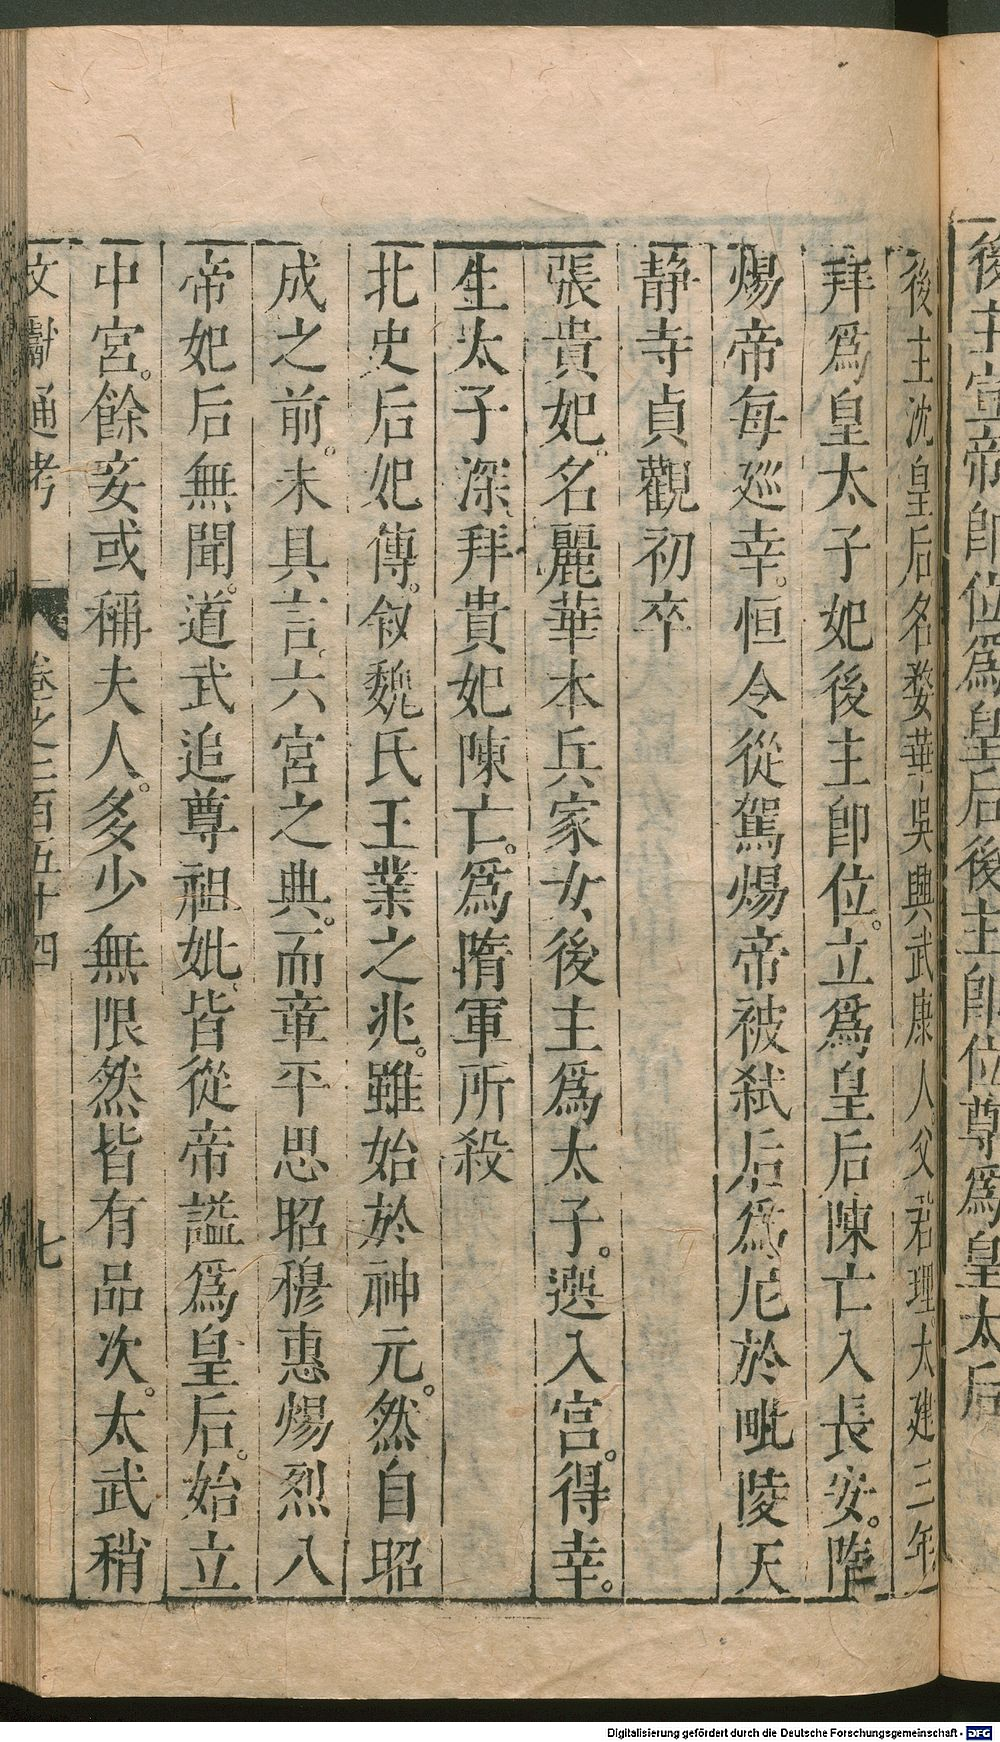 後主宣帝即位為皇后後主即位尊為皇太后
後主沈皇后名婺華吳興武康人父君理太建三年
拜為皇太子妃後主即位。立為皇后陳亡入長安。隋
煬帝每巡幸。恒令從駕煬帝被弒后為尼於毗陵天
靜寺貞觀初卒
張貴妃。名麗華本兵家女後主為太子。選入宮。得幸。
生太子深拜貴妃陳亡。為隋軍所殺
北史后妃傳。敘魏氏王業之兆。雖始於神元。然自昭
成之前。未具言六宮之典。而章平思昭穆惠煬烈八
帝妃后無聞。道武追尊祖妣皆從帝諡為皇后。始立
中宮。餘妾或稱夫人。多少無限然皆有品次。太武稍
文獻通考 卷之二百五十四 七
Digitalisierung gefördert durch die Deutsche Forschungsgemeinschaft - DFG